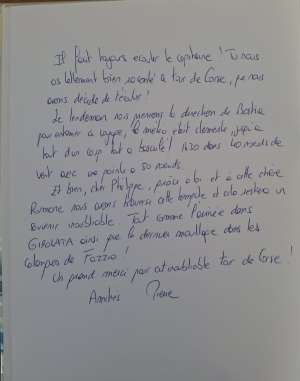 Il faut toujours écouter le capitaine ! Tu nous
as tellement bien raconté ce tour de Corse, que nous
avons décidé de t'écouter !
Le lendemain nous prenions la direction de Bastia
pour entamer ce voyage, la météo était clémente, jusqu'à
tout d'un coup tout a basculé ! 1h30 dans 40 noeuds de
vent avec une pointe à 50 noeuds
Et bien, cher Philippe, grâce à toi et à cette chère
Rumone nous avons traversé cette tempête et cela restera un
souvenir inoubliable. Tout comme l'arrivée dans
GIROLATA ainsi que le dernier mouillage dans les
calanques de
Un grand merci pour cet inoubliable tour de Corse !
Amitiés